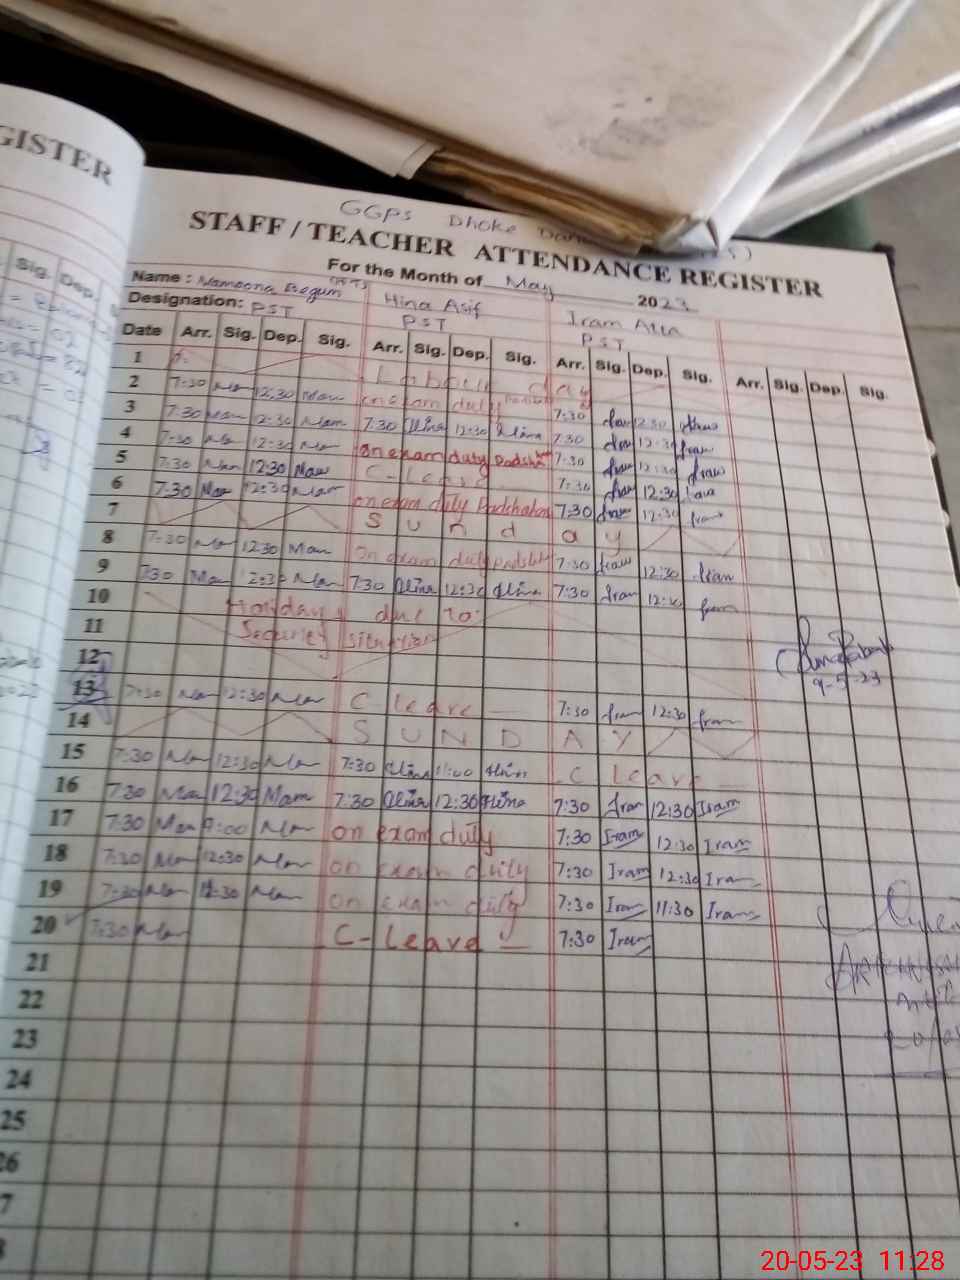 GISTER
Sig. Dep.
GGPS Dhoke
STAFF / TEACHER ATTENDANCE REGISTER
For the Month of May 2023
Name : Mamoona Begum Hina Asif Iram Atta
Designation: PST PST PST
Date Arr. Sig. Dep. Sig. Arr. Sig. Dep. Sig. Arr. Sig. Dep. Sig. Arr. Sig. Dep. Sig.
1 Labour Day
2 7:30 Mam 12:30 Mam on exam duty 7:30 Iram 12:30 Iram
3 7:30 Mam 12:30 Mam 7:30 Hina 12:30 Hina 7:30 Iram 12:30 Iram
4 7:30 Mam 12:30 Mam on exam duty 7:30 Iram 12:30 Iram
5 7:30 Mam 12:30 Mam C-leave 7:30 Iram 12:30 Iram
6 7:30 Mam 12:30 Mam on exam duty Padshahan 7:30 Iram 12:30 Iram
7 Sunday
8 7:30 Mam 12:30 Mam on exam duty 7:30 Iram 12:30 Iram
9 7:30 Mam 12:30 Mam 7:30 Hina 12:30 Hina 7:30 Iram 12:30 Iram
10 Holiday due to
11 Security situation
12
9-5-23
13 7:30 Mam 12:30 Mam C-leave 7:30 Iram 12:30 Iram
14 SUNDAY
15 7:30 Mam 12:30 Mam 7:30 Hina 11:00 Hina C leave
16 7:30 Mam 12:30 Mam 7:30 Hina 12:30 Hina 7:30 Iram 12:30 Iram
17 7:30 Mam 9:00 Mam on exam duty 7:30 Iram 12:30 Iram
18 7:30 Mam 12:30 Mam on exam duty 7:30 Iram 12:30 Iram
19 7:30 Mam 11:30 Mam on exam duty 7:30 Iram 11:30 Iram
20 7:30 Mam C-leave 7:30 Iram
21
22
23
24
25
26
7
8
20-05-23 11:28